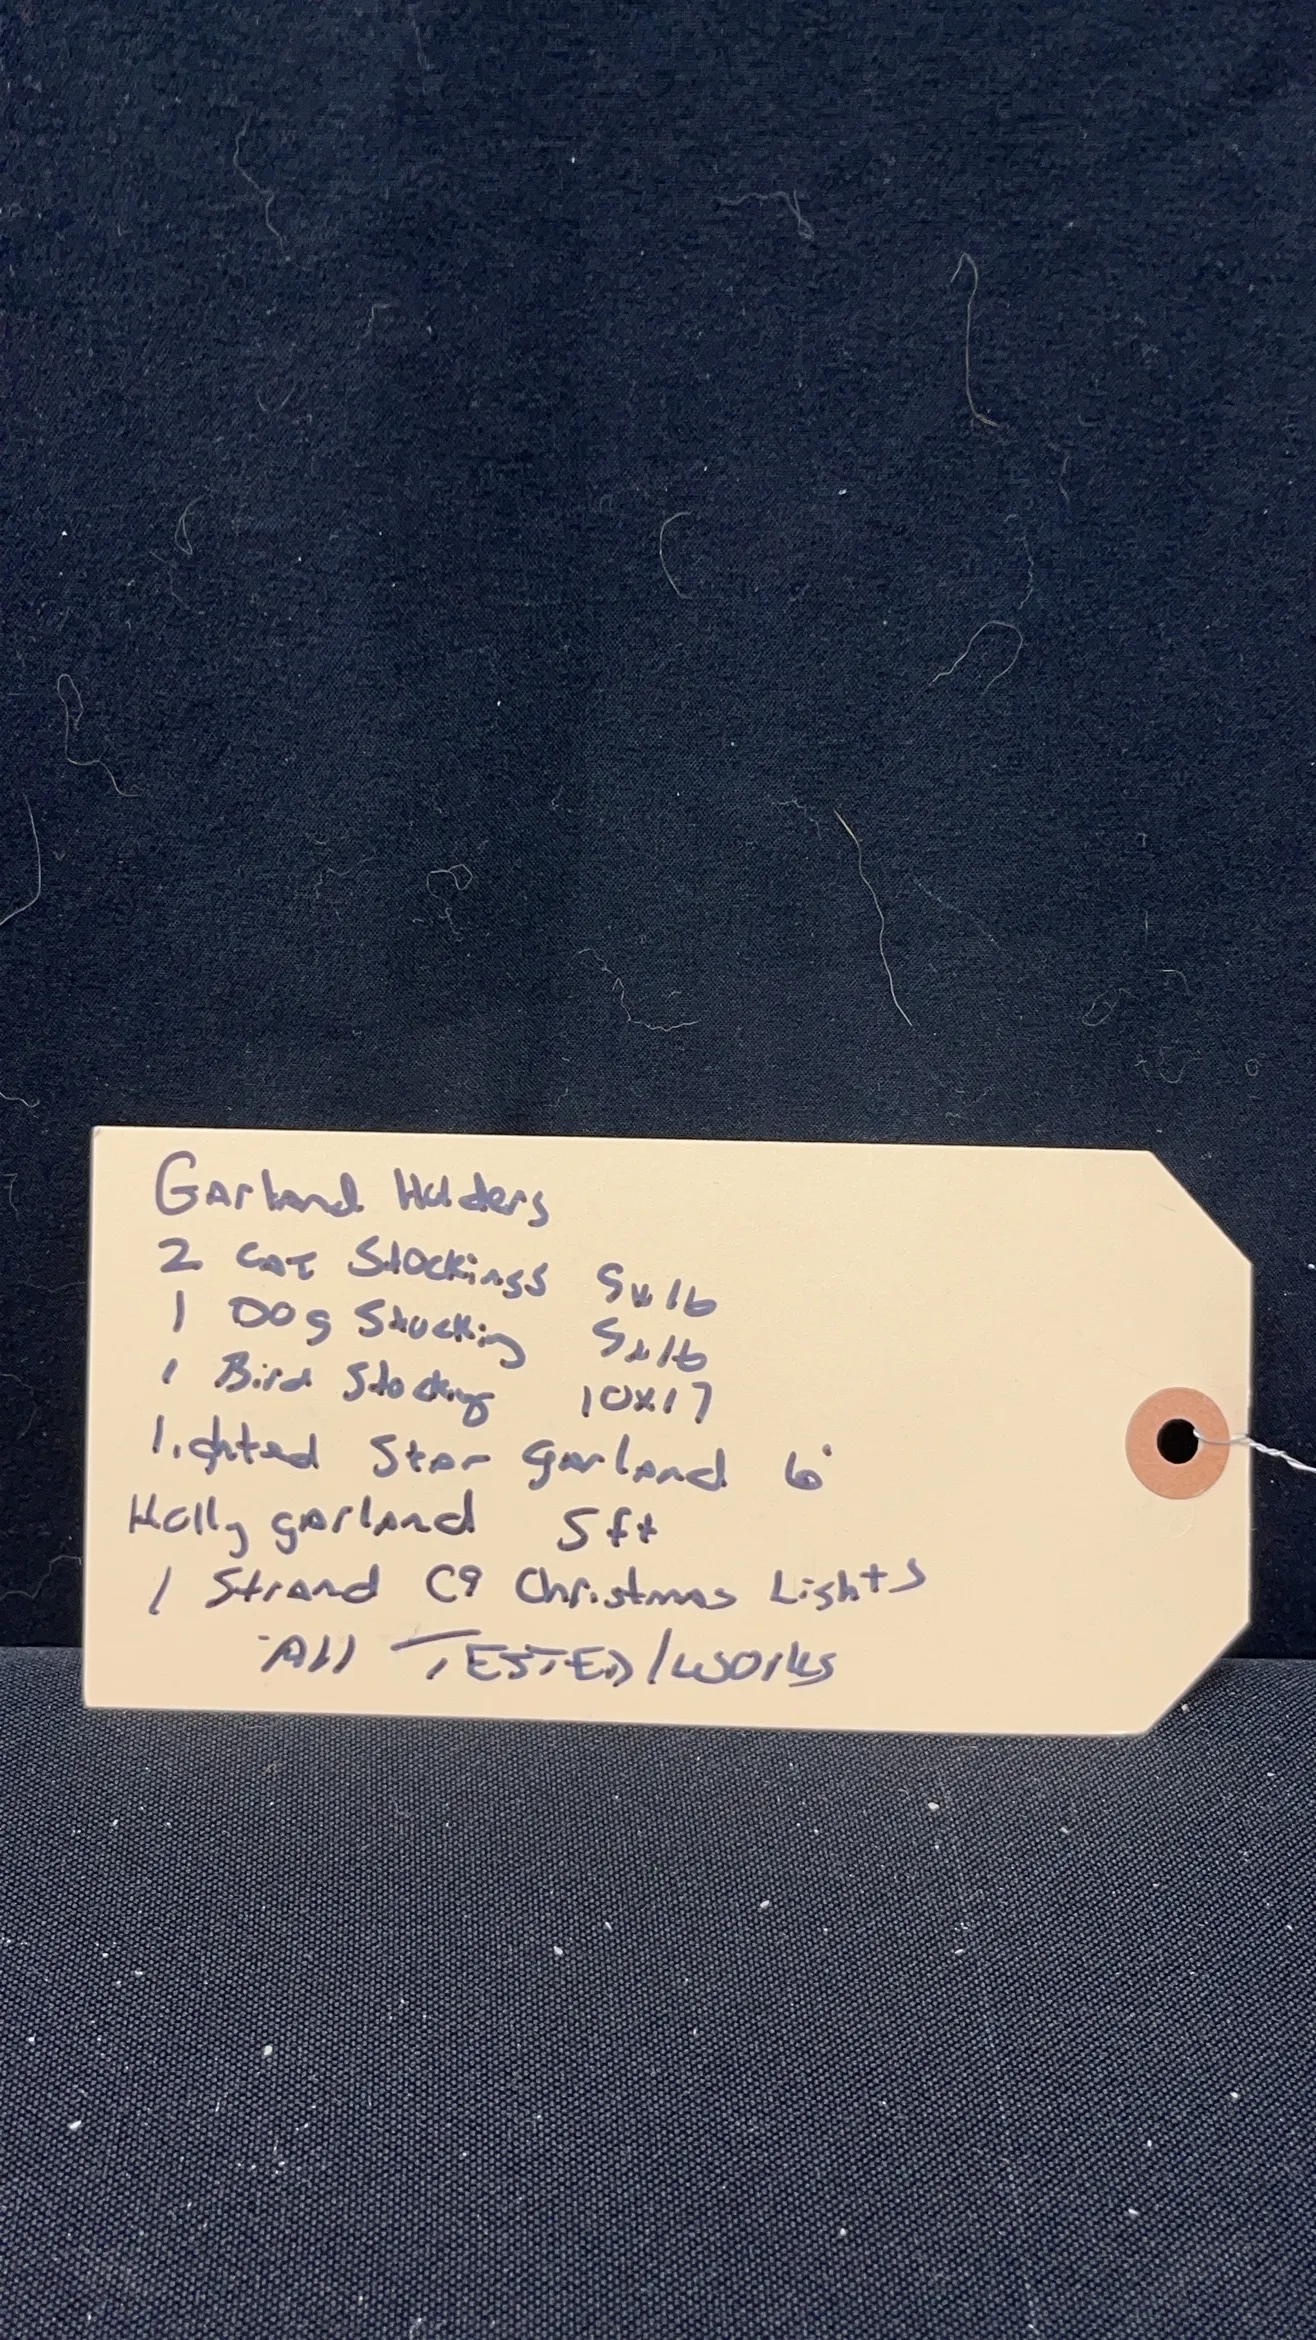 Garland Holders
2 Cat Stockings 9x16
1 Dog Stocking 9x16
1 Bird Stocking 10x17
lighted Star garland 6'
Holly garland 5ft
1 Strand C9 Christmas Lights
All TESTED/works